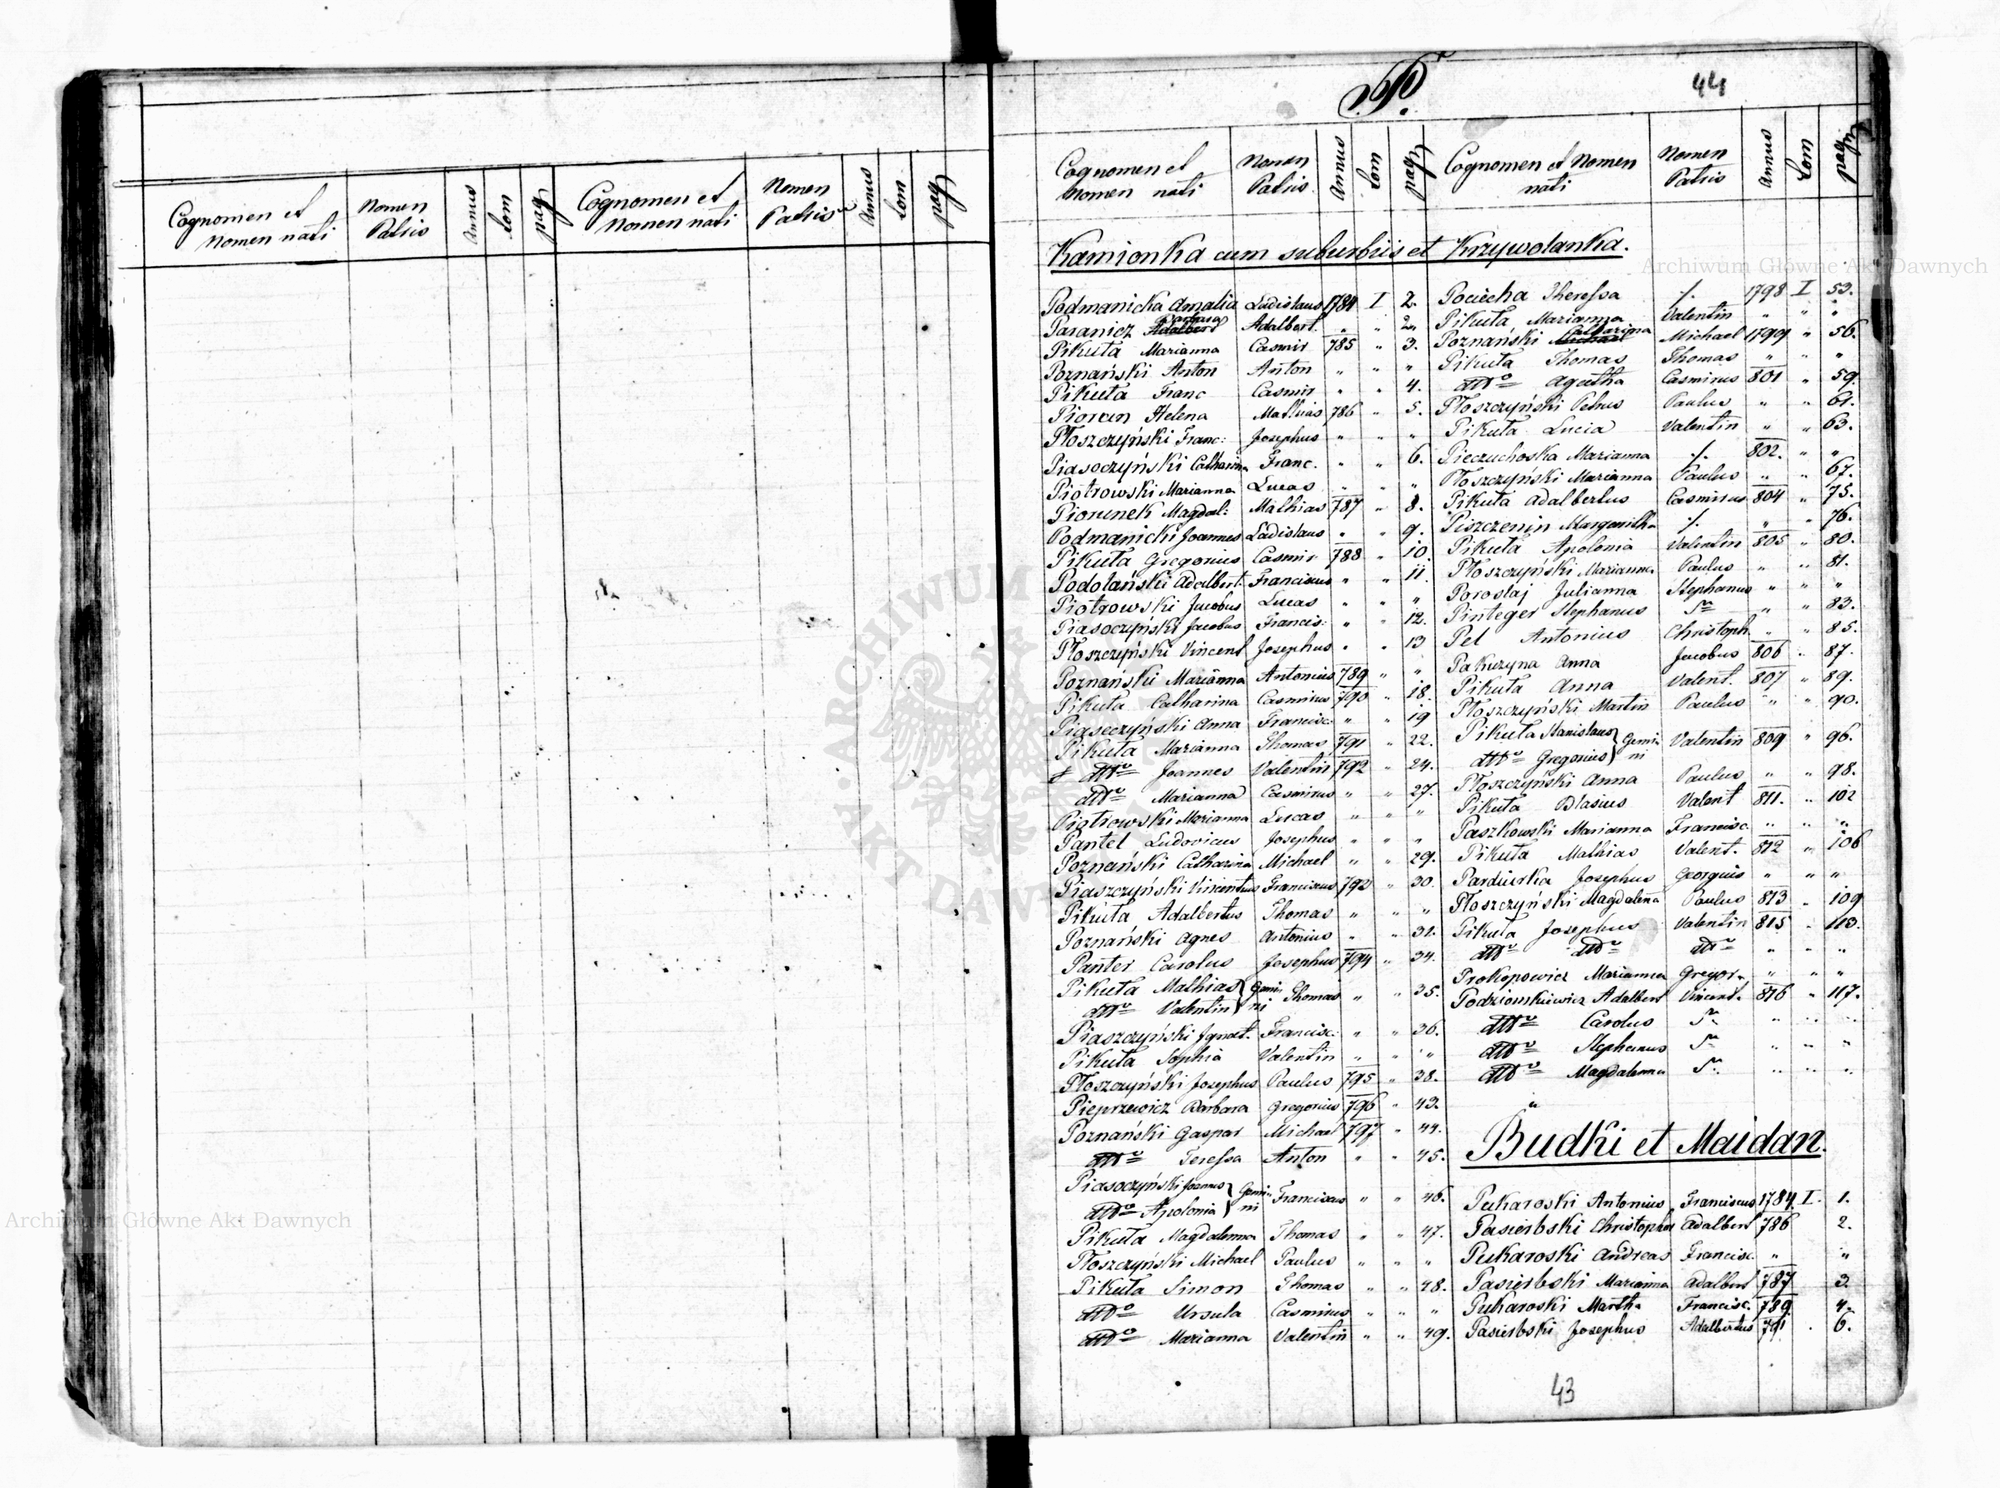 P.
44
Cognomen et Nomen nati Nomen Patris Annus Tom pag Cognomen et Nomen nati Nomen Patris Annus Tom pag
Cognomen et Nomen nati Nomen Patris Annus Tom pag Cognomen et Nomen nati Nomen Patris Annus Tom pag
Kamionka cum suburbiis et Krzywolanka.
Podmanicka Amalia Ladislaus 1784 I 2.
Paranicz Barbara Adalbert. " " 2.
Pikuta Marianna Casmir 785 " 3.
Poznański Anton Anton " " "
Pikuta Franc Casmir " " 4.
Piorun Helena Mathias 786 " 5.
Płoszczyński Franc: Josephus " " "
Piasoczyński Catharina Franc. " " 6.
Piotrowski Marianna Lucas " " "
Piorunek Magdal: Mathias 787 " 8.
Podmanicki Joannes Ladislaus " " 9.
Pikuta Gregorius Casmir 788 " 10.
Podolański Adalbert. Franciscus " " 11.
Piotrowski Jacobus Lucas " " "
Piasoczyński Jacobus Francis: " " 12.
Płoszczyński Vincent Josephus " " 13
Poznański Marianna Antonius 789 " "
Pikuta Catharina Casmirus 790 " 18.
Piaseczyński Anna Francisc: " " 19
Pikuta Marianna Thomas 791 " 22.
dtto Joannes Valentin 792 " 24.
dtto Marianna Casmirus " " 27.
Piotrowski Marianna Lucas " " "
Pantel Ludovicus Josephus " " "
Poznański Catharina Michael " " 29.
Piaszczyński Vincentius Franciscus 793 " 30.
Pikuta Adalbertus Thomas " " "
Poznański Agnes Antonius " " 32.
Panter Carolus Josephus 794 " 34.
Pikuta Mathias } Gemini Thomas " " 35.
dtto Valentin }
Piaszczyński Ignat. Francisc: " " 36.
Pikuta Sophia Valentin " " "
Płoszczyński Josephus Paulus 795 " 38.
Pieprzewicz Barbara Gregorius 796 " 43.
Poznański Gaspar Michael 797 " 44.
dtto Teressa Anton " " 45.
Piasoczyński Joannes } Gemini Franciscus " " 46.
dtto Apolonia }
Pikuta Magdalenna Thomas " " 47.
Płoszczyński Michael Paulus " " "
Pikuta Simon Thomas " " 48.
dtto Ursula Casmirus " " "
dtto Marianna Valentin " " 49.
Pociecha Theressa ./. 1798 I 53.
Pikuta Marianna Valentin " " "
Poznański Catharina Michael 1799 " 56.
Pikuta Thomas Thomas " " "
dtto Agatha Casmirus 801 " 59.
Płoszczyński Petrus Paulus " " 61.
Pikuta Lucia Valentin " " 63.
Pieczuchoska Marianna ./. 802. " "
Płoszczyński Marianna Paulus " " 67.
Pikuta Adalbertus Casmirus 804 " 75.
Piszczenin Margaritha ./. " " 76.
Pikuta Apolonia Valentin 805 " 80.
Płoszczyński Marianna Paulus " " 81.
Porostaj Julianna Stephanus " " "
Pinteger Stephanus Sn " " 83.
Pel Antonius Christoph. " " 85.
Pakuzyna Anna Jacobus 806 " 87.
Pikuta Anna Valent. 807 " 89.
Płoszczyński Martin Paulus " " 90.
Pikuta Stanislaus } Gemini Valentin 809 " 96.
dtto Gregorius }
Płoszczyński Anna Paulus " " 98.
Pikuta Blasius Valent 811. " 102
Paszkowski Marianna Francisc. " " "
Pikuta Mathias Valent. 812 " 106
Parduska Josephus Georgius " " "
Płoszczyński Magdalena Paulus 813 " 109
Pikuta Josephus Valentin 815 " 113.
dtto dtto dtto " " "
Prokopowicz Marianna Gregor. " " "
Podziomkiewicz Adalbert Vincent. 816 " 117.
dtto Carolus Sn " " "
dtto Stephanus Sn " " "
dtto Magdalenna Sn " " "
Budki et Maidan.
Pukaroski Antonius Franciscus 1784 I. 1.
Pasierbski Christophor Adalbert 786 2.
Pukaroski Andreas Francisc. " "
Pasierbski Marianna Adalbert 787 3.
Pukaroski Martha Francisc. 789 4.
Pasierbski Josephus Adalbertus 791 6.
43
Archiwum Główne Akt Dawnych
Archiwum Główne Akt Dawnych
ARCHIWUM
AKT DAWN